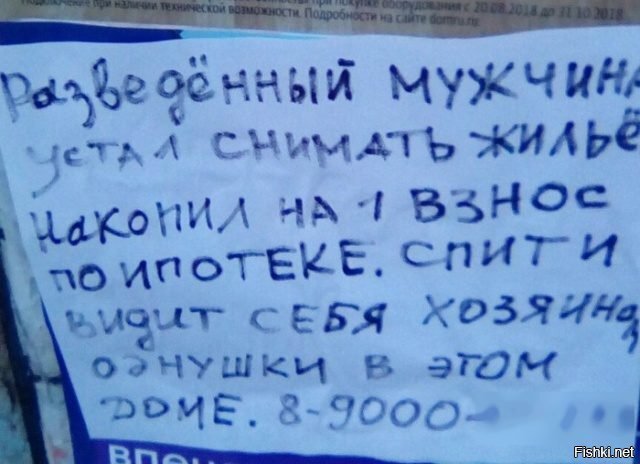 Подключение при наличии технической возможности. Подробности на сайте domru.ru
при покупке оборудования с 20.08.2018 до 31.10.2018
Разведённый мужчина
устал снимать жильё
накопил на 1 взнос
по ипотеке. Спит и
видит себя хозяином
однушки в этом
доме. 8-9000-
Fishki.net